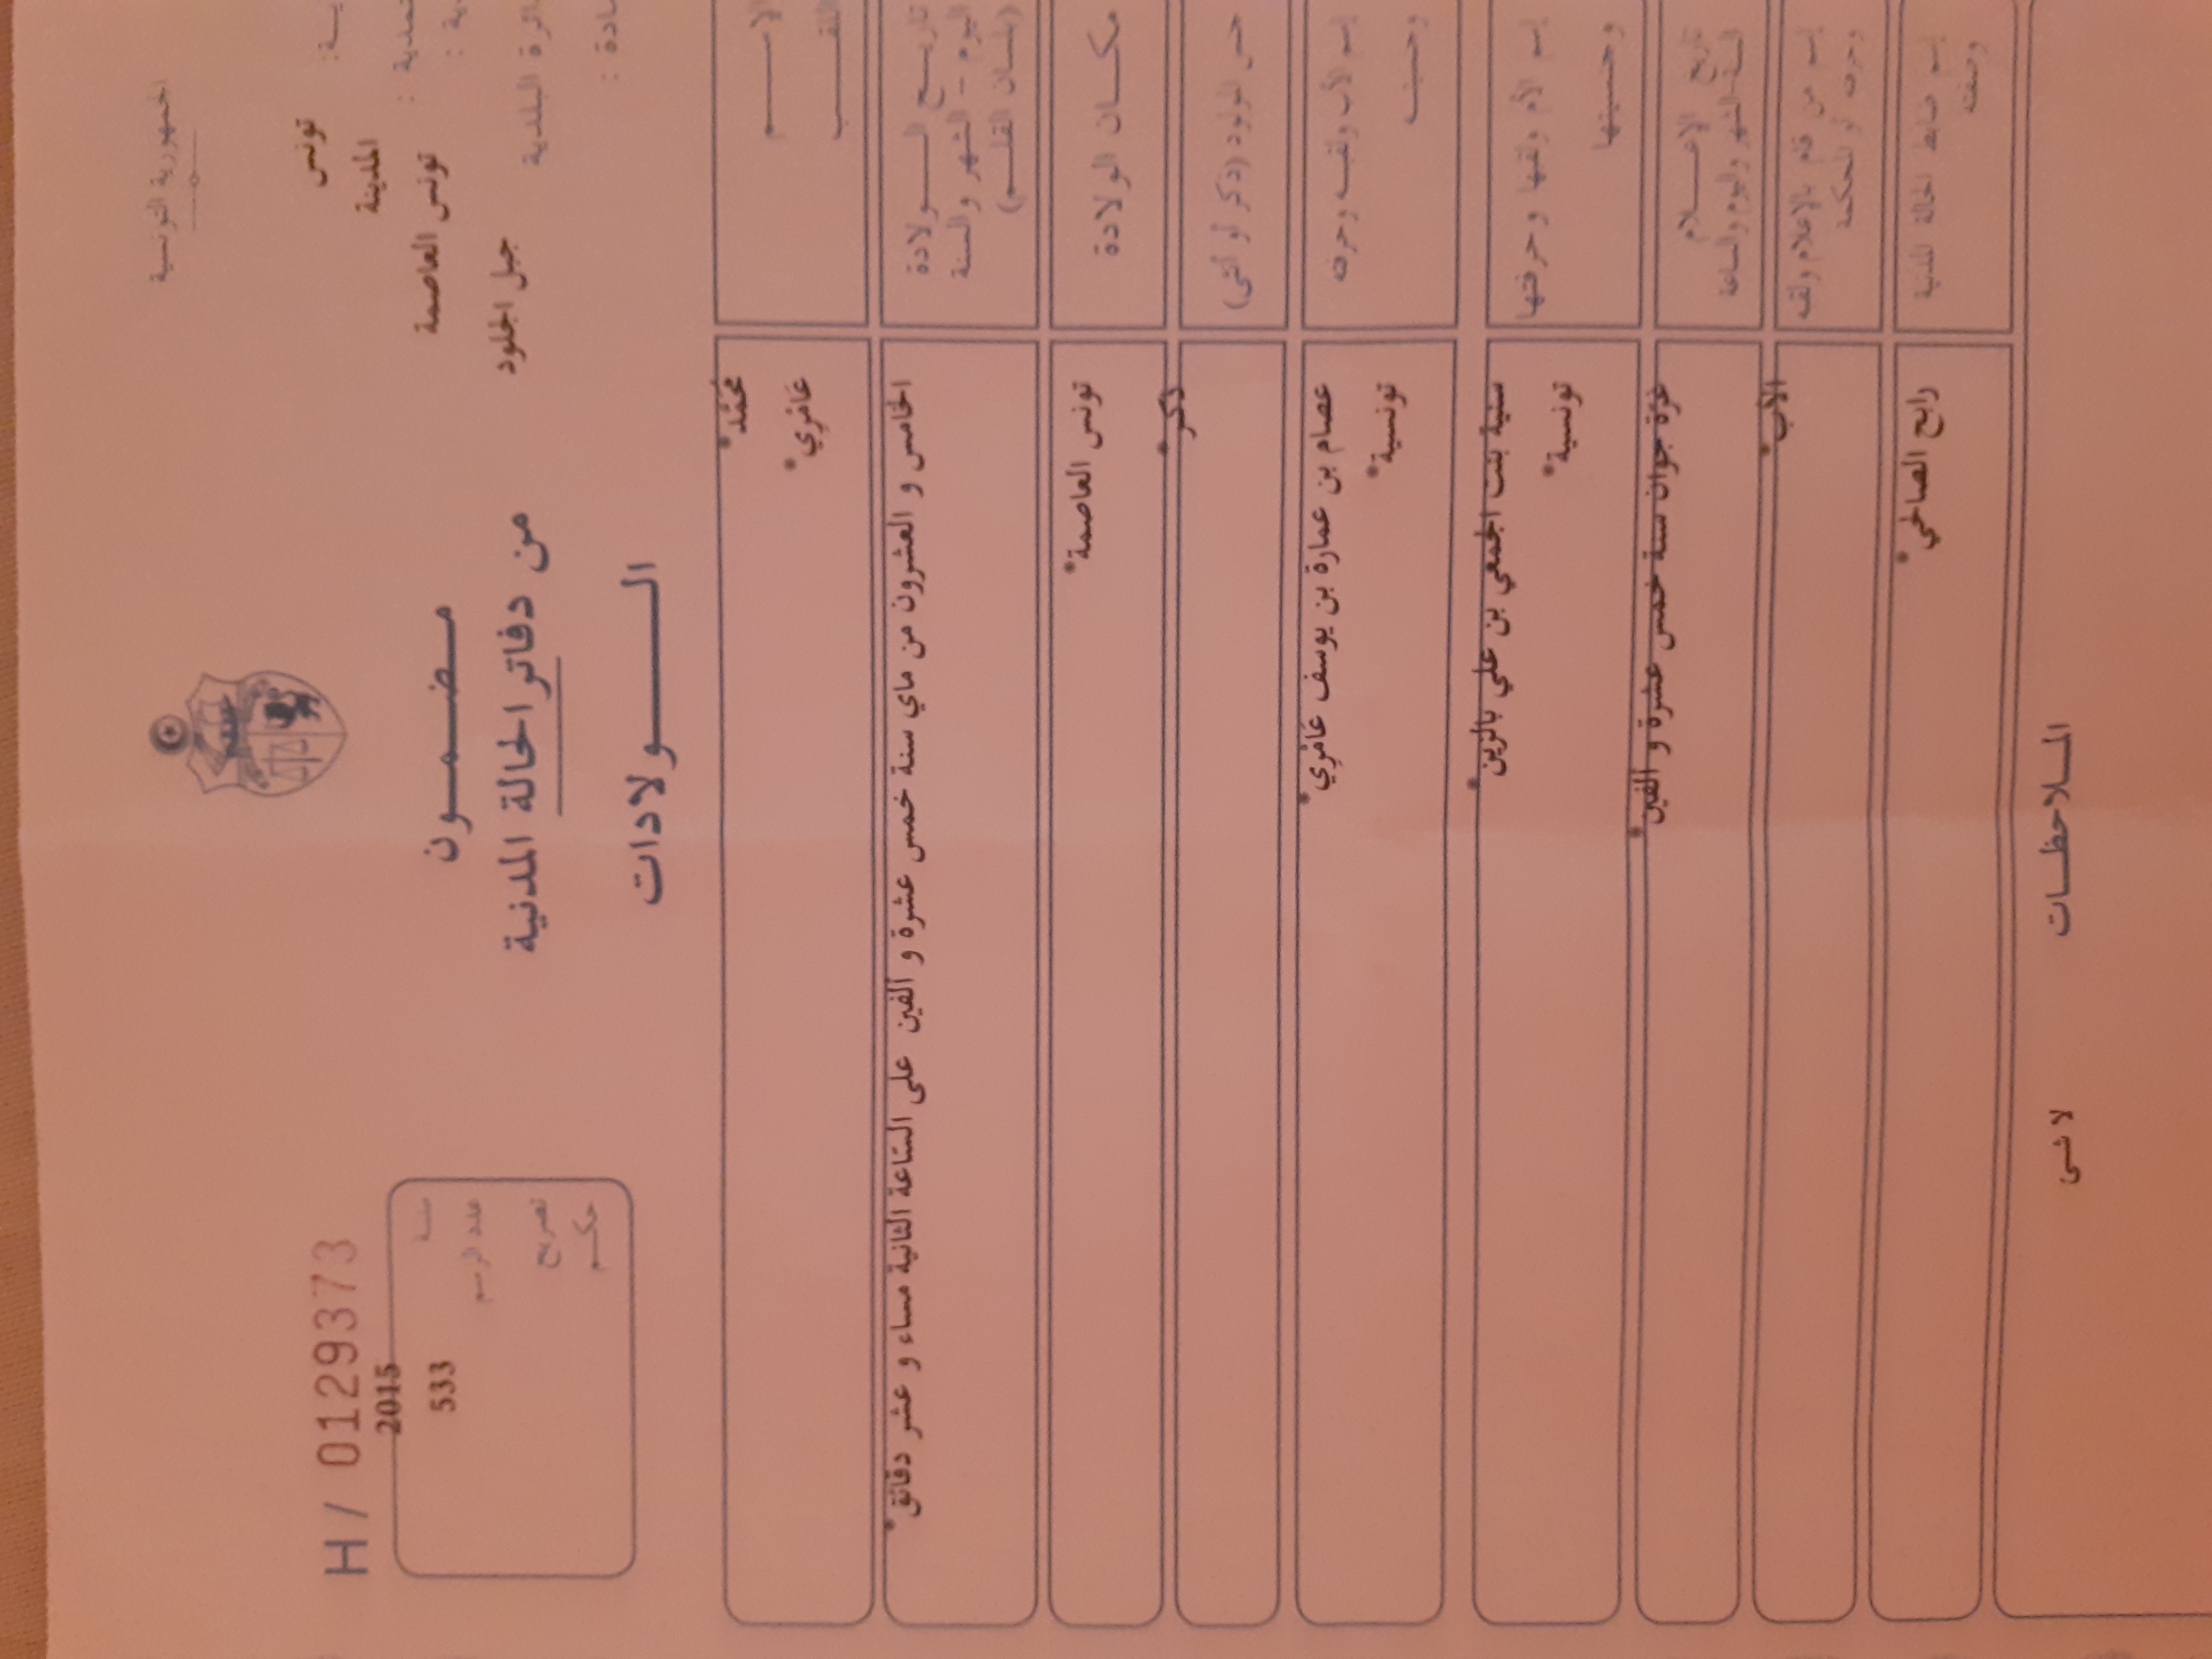 الجمهورية التونسية
تونس
المدينة
تونس العاصمة
جبل الجلود
ـائرة البلدية
ـادة :
H / 0129373
2015
سنة
533
عدد الرسم
تصريح
حكم
مضمون
من دفاتر الحالة المدنية
الولادات
الاسم
مُحَمَّد*
اللقب
عَامْرِي*
تاريخ الولادة
اليوم - الشهر والسنة
(بلسان القلم)
الخامس و العشرون من ماي سنة خمس عشرة و ألفين على السّاعة الثانية مساء و عشر دقائق*
مكان الولادة
تونس العاصمة*
جنس المولود (ذكر أو أنثى)
ذكر*
إسم الأب ولقبه وحرفته
وجنسيته
عصام بن عمارة بن يوسف عَامْرِي*
تونسية*
إسم الأم ولقبها وحرفتها
وجنسيتها
سنية بنت الجمعي بن علي بالزين*
تونسية*
تاريخ الإعلام
السنة-الشهر واليوم والساعة
غرّة جوان سنة خمس عشرة و ألفين*
إسم من قام بالإعلام ولقبه
وحرفته أو المحكمة
الأب*
إسم ضابط الحالة المدنية
وصفته
رابح الصالحي*
الملاحظات
لا شىء